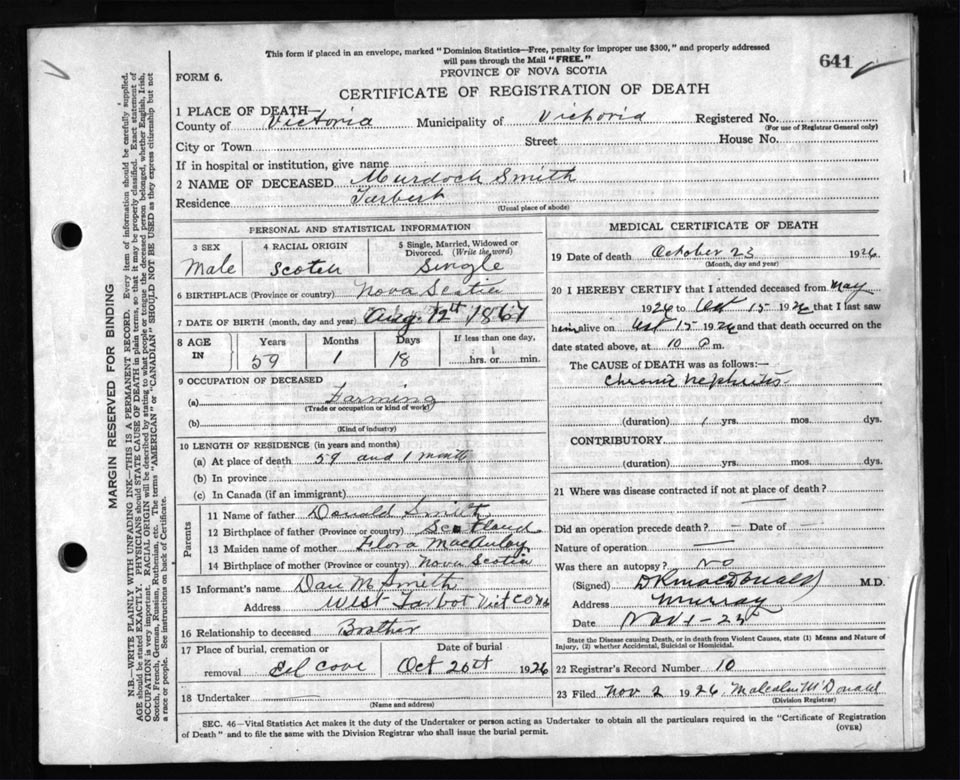 This form if placed in an envelope, marked "Dominion Statistics—Free, penalty for improper use $300," and properly addressed
will pass through the Mail "FREE."
641
FORM 6.
PROVINCE OF NOVA SCOTIA
CERTIFICATE OF REGISTRATION OF DEATH
1 PLACE OF DEATH—
County of Victoria Municipality of Victoria Registered No.
(For use of Registrar General only)
City or Town Street House No.
If in hospital or institution, give name
2 NAME OF DECEASED Murdoch Smith
Residence Tarbert
(Usual place of abode)
PERSONAL AND STATISTICAL INFORMATION
3 SEX 4 RACIAL ORIGIN 5 Single, Married, Widowed or
Divorced. (Write the word)
Male Scotch Single
6 BIRTHPLACE (Province or country) Nova Scotia
7 DATE OF BIRTH (month, day and year) Aug. 12th 1867
8 AGE
IN
Years Months Days If less than one day,
59 1 18 hrs. or min.
9 OCCUPATION OF DECEASED
(a) Farming
(Trade or occupation or kind of work)
(b)
(Kind of industry)
10 LENGTH OF RESIDENCE (in years and months)
(a) At place of death 59 and 1 month
(b) In province
(c) In Canada (if an immigrant)
Parents
11 Name of father Donald Smith
12 Birthplace of father (Province or country) Scotland
13 Maiden name of mother Flora MacAulay
14 Birthplace of mother (Province or country) Nova Scotia
15 Informant's name Dan M Smith
Address West Tarbot Vict Co NS
16 Relationship to deceased Brother
17 Place of burial, cremation or Date of burial
removal Eel Cove Oct 26th 1926
18 Undertaker
(Name and address)
MEDICAL CERTIFICATE OF DEATH
19 Date of death October 23 1926
(Month, day and year)
20 I HEREBY CERTIFY that I attended deceased from May
1926 to Oct 15 1926 that I last saw
him alive on Oct 15 1926 and that death occurred on the
date stated above, at 10 P m.
The CAUSE of DEATH was as follows:—
Chronic Nephritis
(duration) 1 yrs. mos. dys.
CONTRIBUTORY
(duration) yrs. mos. dys.
21 Where was disease contracted if not at place of death?
Did an operation precede death? — Date of —
Nature of operation —
Was there an autopsy? No
(Signed) DKMacDonald M.D.
Address Murray
Date Nov 1-26
State the Disease causing Death, or in death from Violent Causes, state (1) Means and Nature of
Injury, (2) whether Accidental, Suicidal or Homicidal.
22 Registrar's Record Number 10
23 Filed Nov 2 1926 Malcolm McDonald
(Division Registrar)
SEC. 46—Vital Statistics Act makes it the duty of the Undertaker or person acting as Undertaker to obtain all the particulars required in the "Certificate of Registration
of Death" and to file the same with the Division Registrar who shall issue the burial permit.
(OVER)
MARGIN RESERVED FOR BINDING
N.B.—WRITE PLAINLY WITH UNFADING INK—THIS IS A PERMANENT RECORD. Every item of information should be carefully supplied.
AGE should be stated EXACTLY. PHYSICIANS should STATE CAUSE OF DEATH in plain terms, so that it may be properly classified. Exact statement of
OCCUPATION is very important. RACIAL ORIGIN will be described by stating to what people or tongue the deceased person belonged, whether English, Irish,
Scotch, French, German, Russian, Ruthenian, etc. The terms "AMERICAN" or "CANADIAN" SHOULD NOT BE USED as they express citizenship but not
a race or people. See instructions on back of Certificate.